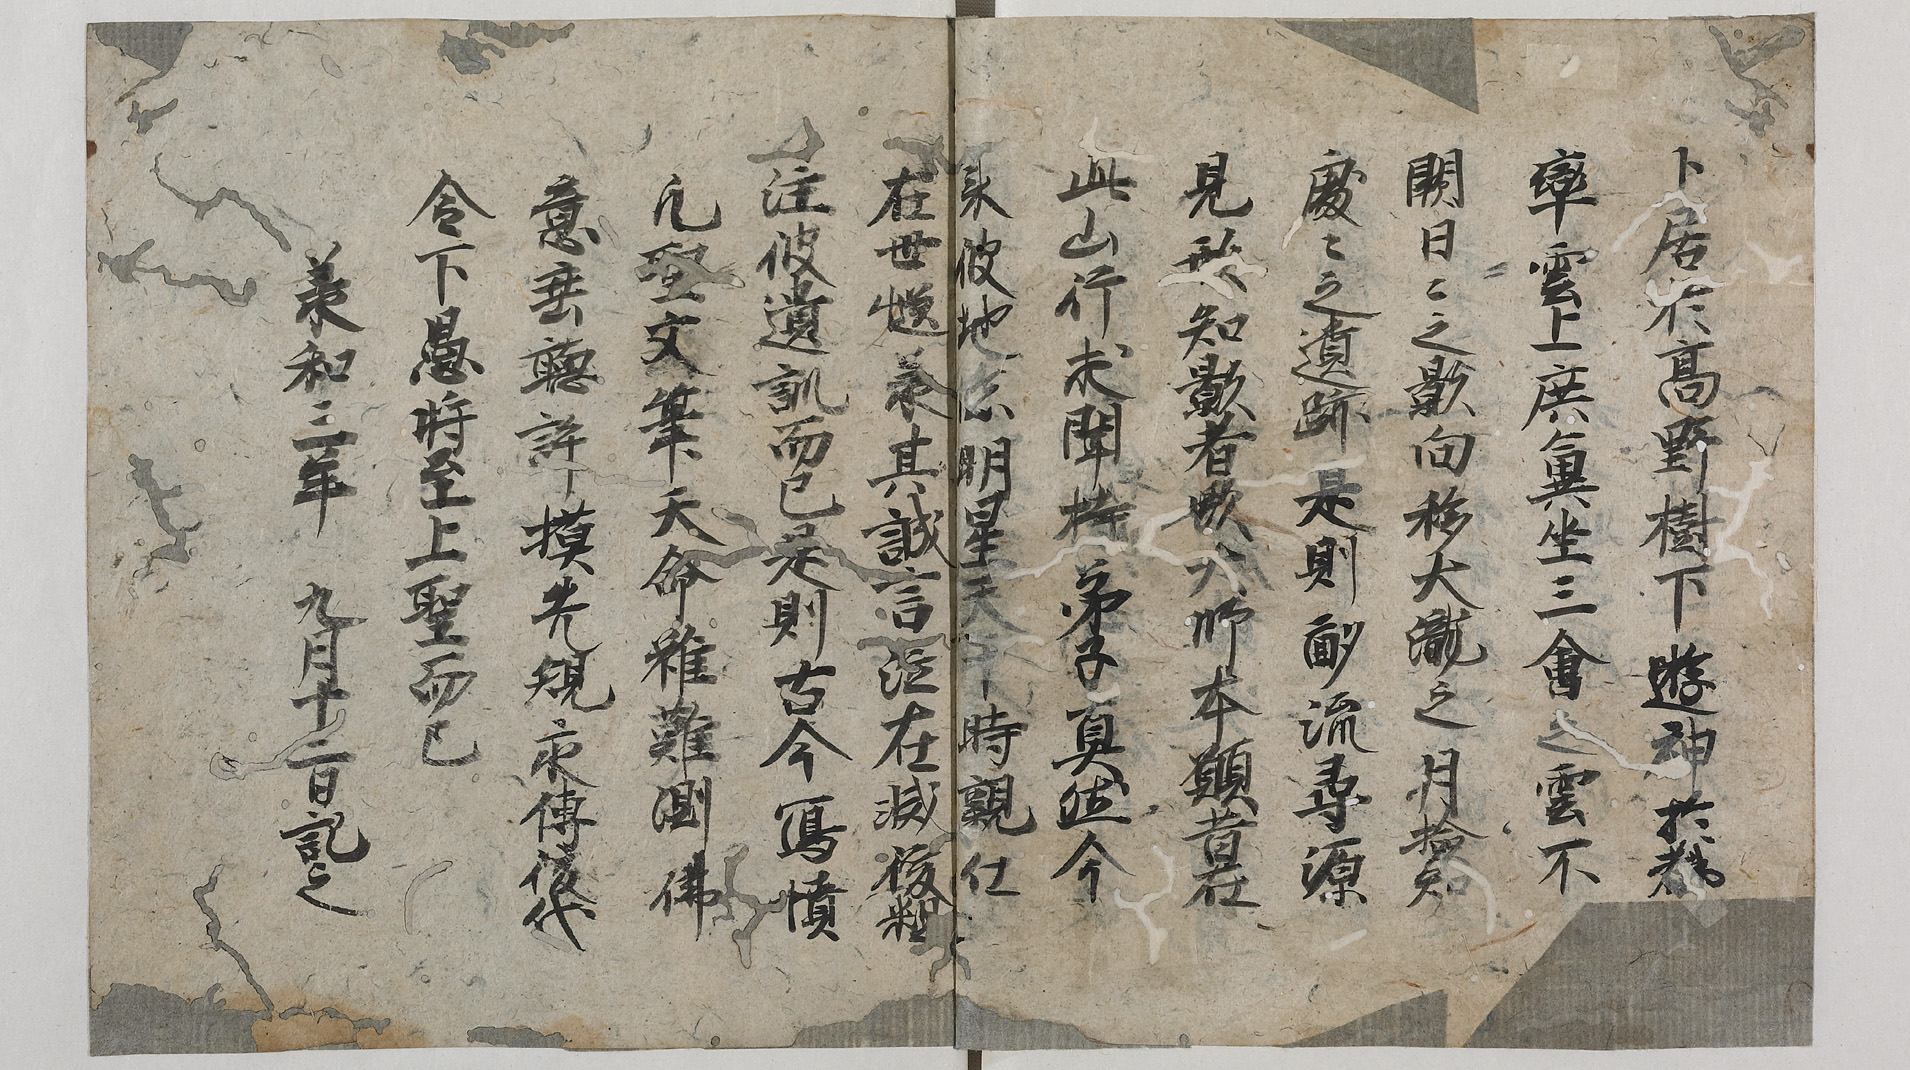 卜居於高野樹下遊神於都
率雲上広異坐三會之雲不
闕日々之影向移大瀧之月撿知
處々之遺跡是則酌流尋源
見形知影者歟大師本願昔在
此山行未聞持弟子真然今
来彼地念明星天子時親仕
在世忝承其誠言泣在滅後粗
注彼遺訓而已是則古今寫憤
凡聖文筆天命雖難測佛
意垂許摸先規永傳後代
令下愚將至上聖而已
羕和三年 九月十二日記之